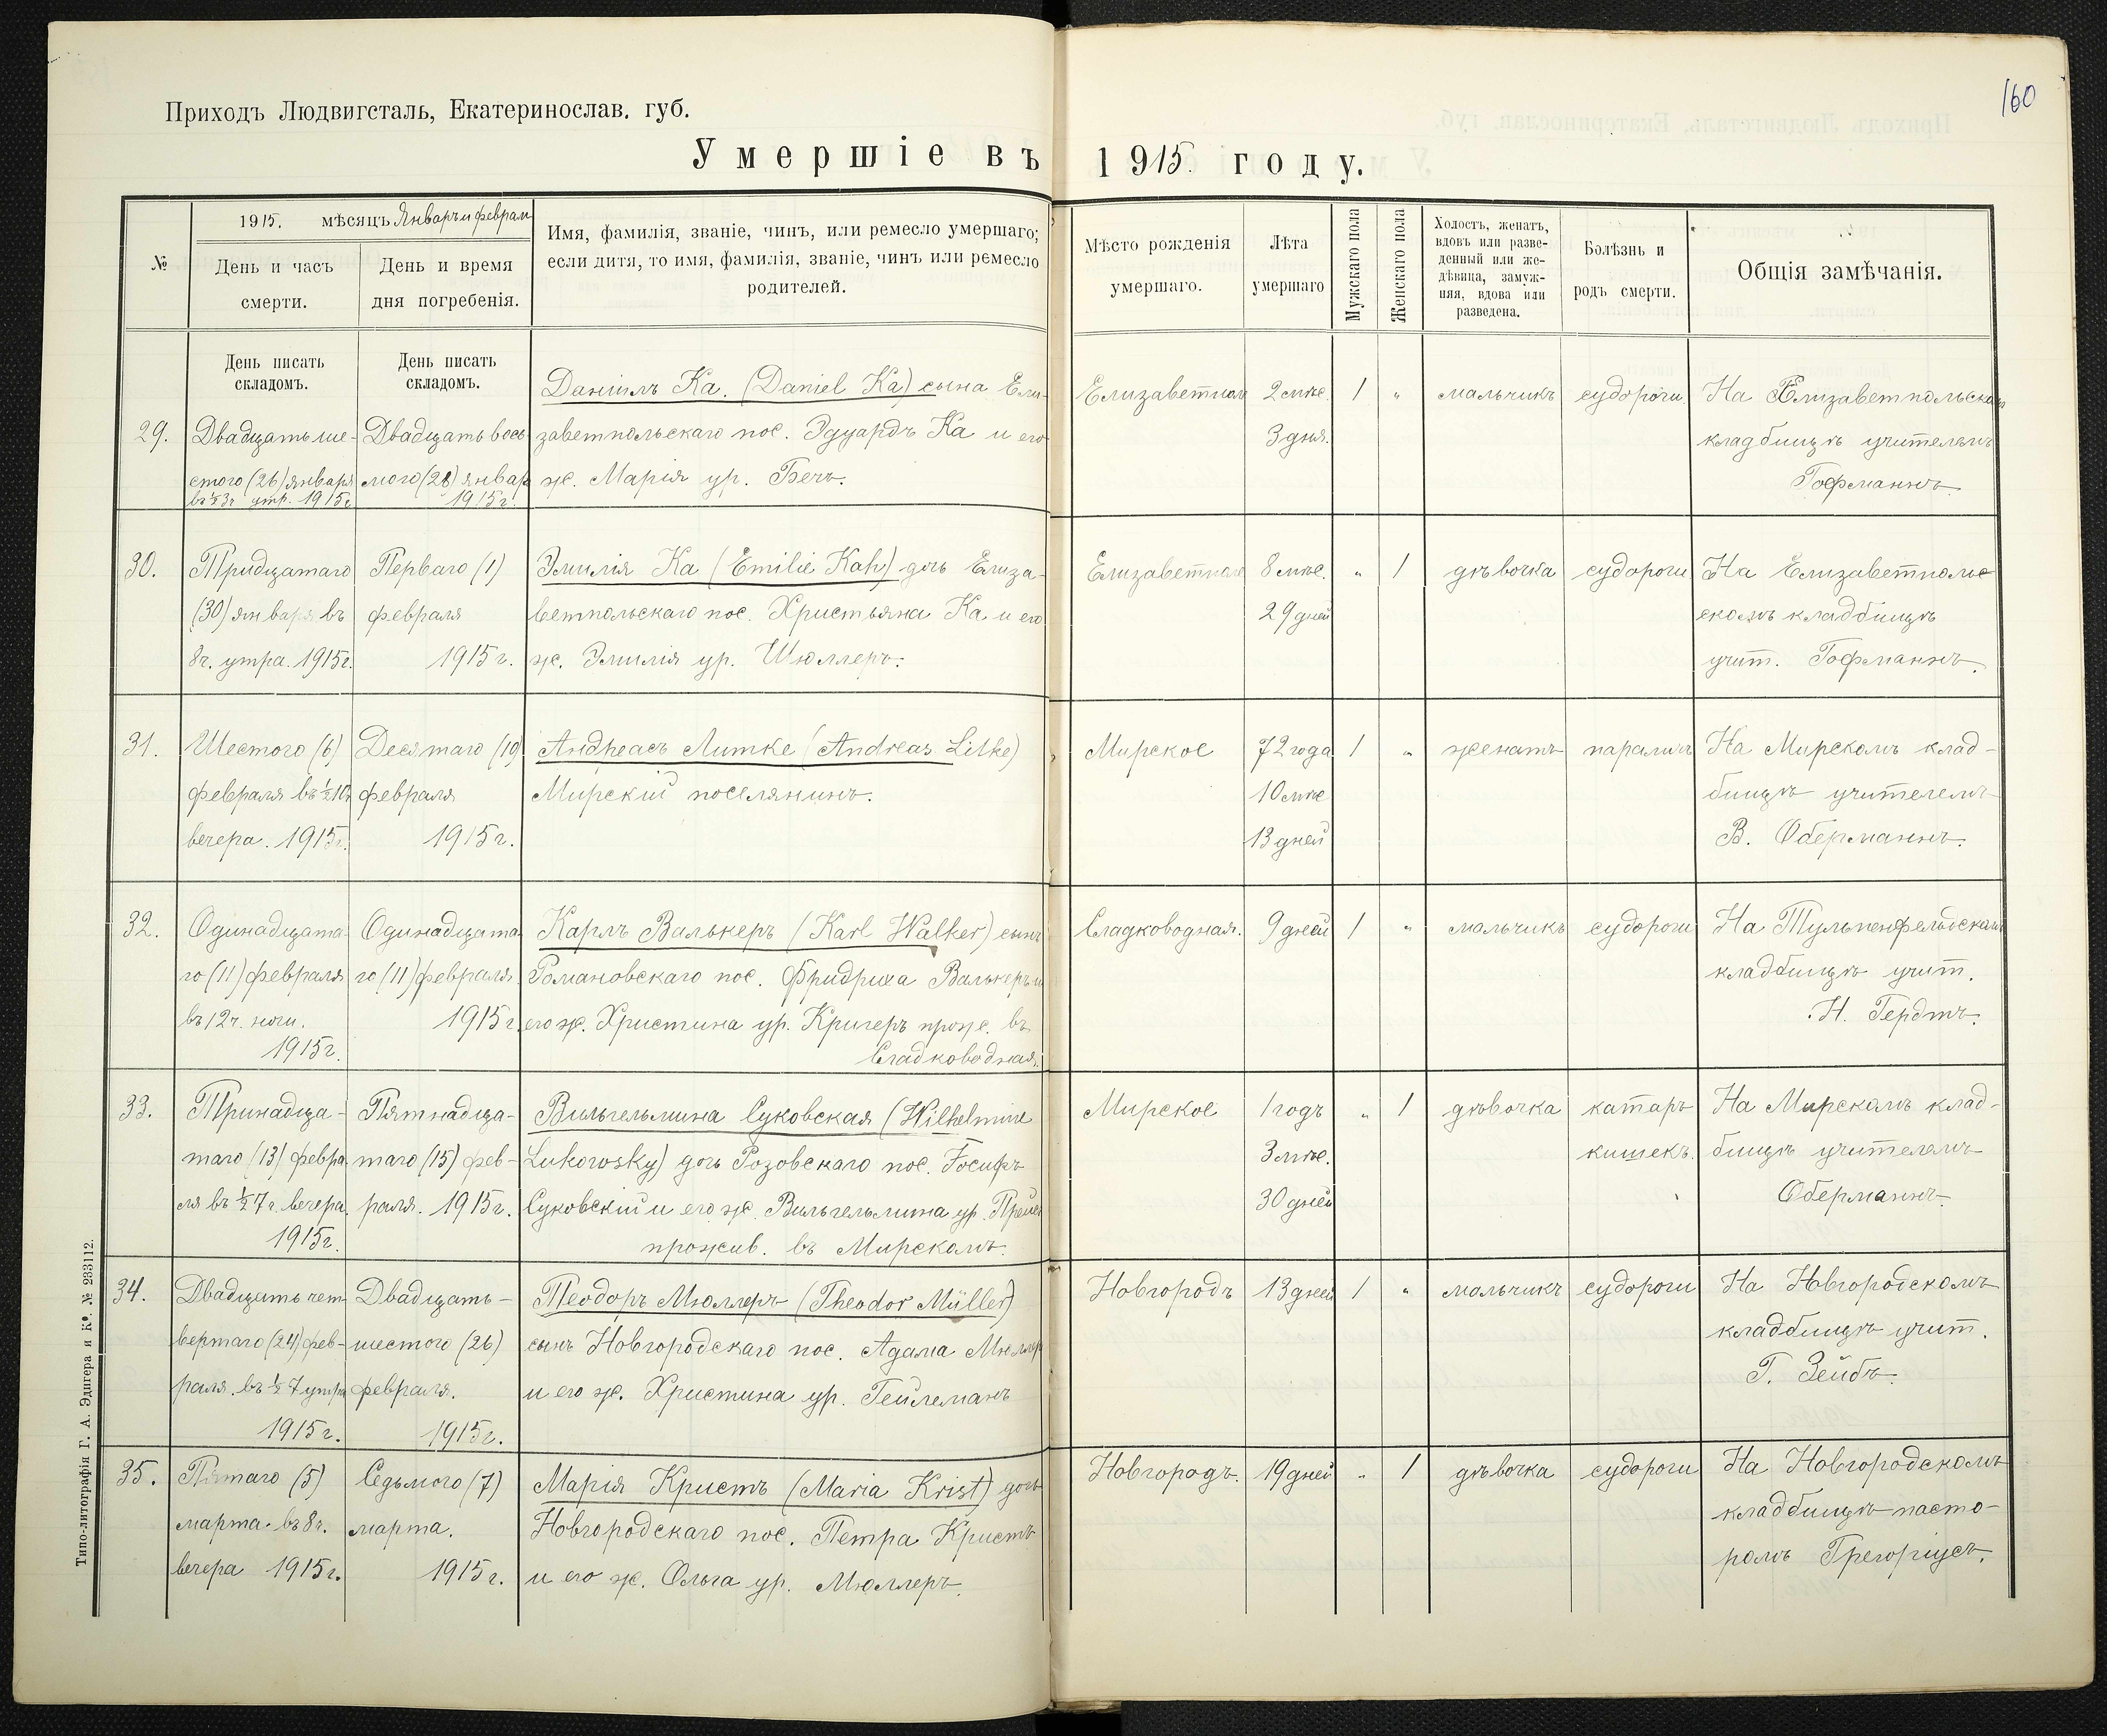 160
Приходъ Людвигсталь, Екатеринослав. губ.
Умершіе въ 1915 году.
№
1915. мѣсяцъ Январь и феврал
День и часъ
смерти.
День и время
дня погребенія.
Имя, фамилія, званіе, чинъ, или ремесло умершаго;
если дитя, то имя, фамилія, званіе, чинъ или ремесло
родителей.
Мѣсто рожденія
умершаго.
Лѣта
умершаго
Мужскаго пола
Женскаго пола
Холостъ, женатъ,
вдовъ или разве-
денный или же-
дѣвица, замуж-
няя, вдова или
разведена.
Болѣзнь и
родъ смерти.
Общія замѣчанія.
День писать
складомъ.
День писать
складомъ.
29.
Двадцать ше-
стого (26) января
въ ½3ч утр. 1915г.
Двадцать вось
мого (28) январ
1915г.
Даніилъ Ка. (Daniel Ka) сына Ели-
заветпольскаго пос. Эдуардъ Ка и его
ж. Марія ур. Бечъ.
Елизаветпол
2 мѣс.
3 дня.
1
"
мальчикъ
судороги.
На Елизаветпольском
кладбищѣ учителемъ
Гофманнъ.
30.
Тридцатаго
(30) января въ
8ч. утра. 1915г.
Перваго (1)
февраля
1915г.
Эмилія Ка (Emilie Kah) дочь Елиза-
ветпольскаго пос. Христьяна Ка и его
ж. Эмилія ур. Шюллеръ.
Елизаветполе
8 мѣс.
29 дней
"
1
дѣвочка
судороги
На Елизаветполь-
скомъ кладбищѣ
учит. Гофманнъ.
31.
Шестого (6)
февраля въ ½10ч
вечера. 1915г.
Десятаго (10)
февраля
1915г.
Андреасъ Литке (Andreas Litke)
Мирскій поселянинъ.
Мирское
72 года
10 мѣс
13 дней
1
"
женатъ
параличъ
На Мирскомъ клад-
бищѣ учителемъ
В. Оберманнъ.
32.
Одинадцата-
го (11) февраля
въ 12ч. ночи.
1915г.
Одинадцата
го (11) февраля
1915г.
Карлъ Валькеръ (Karl Walker) сынъ
Романовскаго пос. Фридриха Валькеръ и
его ж. Христина ур. Кригеръ прож. въ
Сладководная.
Сладководная.
9 дней
1
"
мальчикъ
судороги
На Тульпенфельдскомъ
кладбищѣ учит.
Н. Гердтъ.
33.
Тринадца-
таго (13) февра
ля въ ½7ч. вечера.
1915г.
Пятнадца-
таго (15) фев-
раля. 1915г.
Вильгельмина Суковская (Wilhelmine
Sukowsky) дочь Розовскаго пос. Іосифъ
Суковскій и его ж. Вильгельмина ур.
прожив. въ Мирскомъ.
Мирское
1 годъ
3 мѣс.
30 дней
"
1
дѣвочка
катаръ
кишекъ.
На Мирскомъ клад-
бищѣ учителемъ
Оберманнъ.
34.
Двадцать чет
вертаго (24) фев-
раля. въ ½7 утра
1915г.
Двадцать-
шестого (26)
февраля.
1915г.
Теодоръ Мюллеръ (Theodor Müller)
сынъ Новгородскаго пос. Адама Мюллер
и его ж. Христина ур. Гейлеманъ
Новгородъ
13 дней
1
"
мальчикъ
судороги
На Новгородскомъ
кладбищѣ учит.
Г. Зейбъ.
35.
Пятаго (5)
марта въ 8ч.
вечера 1915г.
Седьмого (7)
марта.
1915г.
Марія Кристъ (Maria Krist) дочь
Новгородскаго пос. Петра Кристъ
и его ж. Ольга ур. Мюллеръ.
Новгородъ.
19 дней
"
1
дѣвочка
судороги
На Новгородскомъ
кладбищѣ пасто-
ромъ Грегоріусъ.
Типо-литографія Г. А. Эдигера и Ко. № 233112.